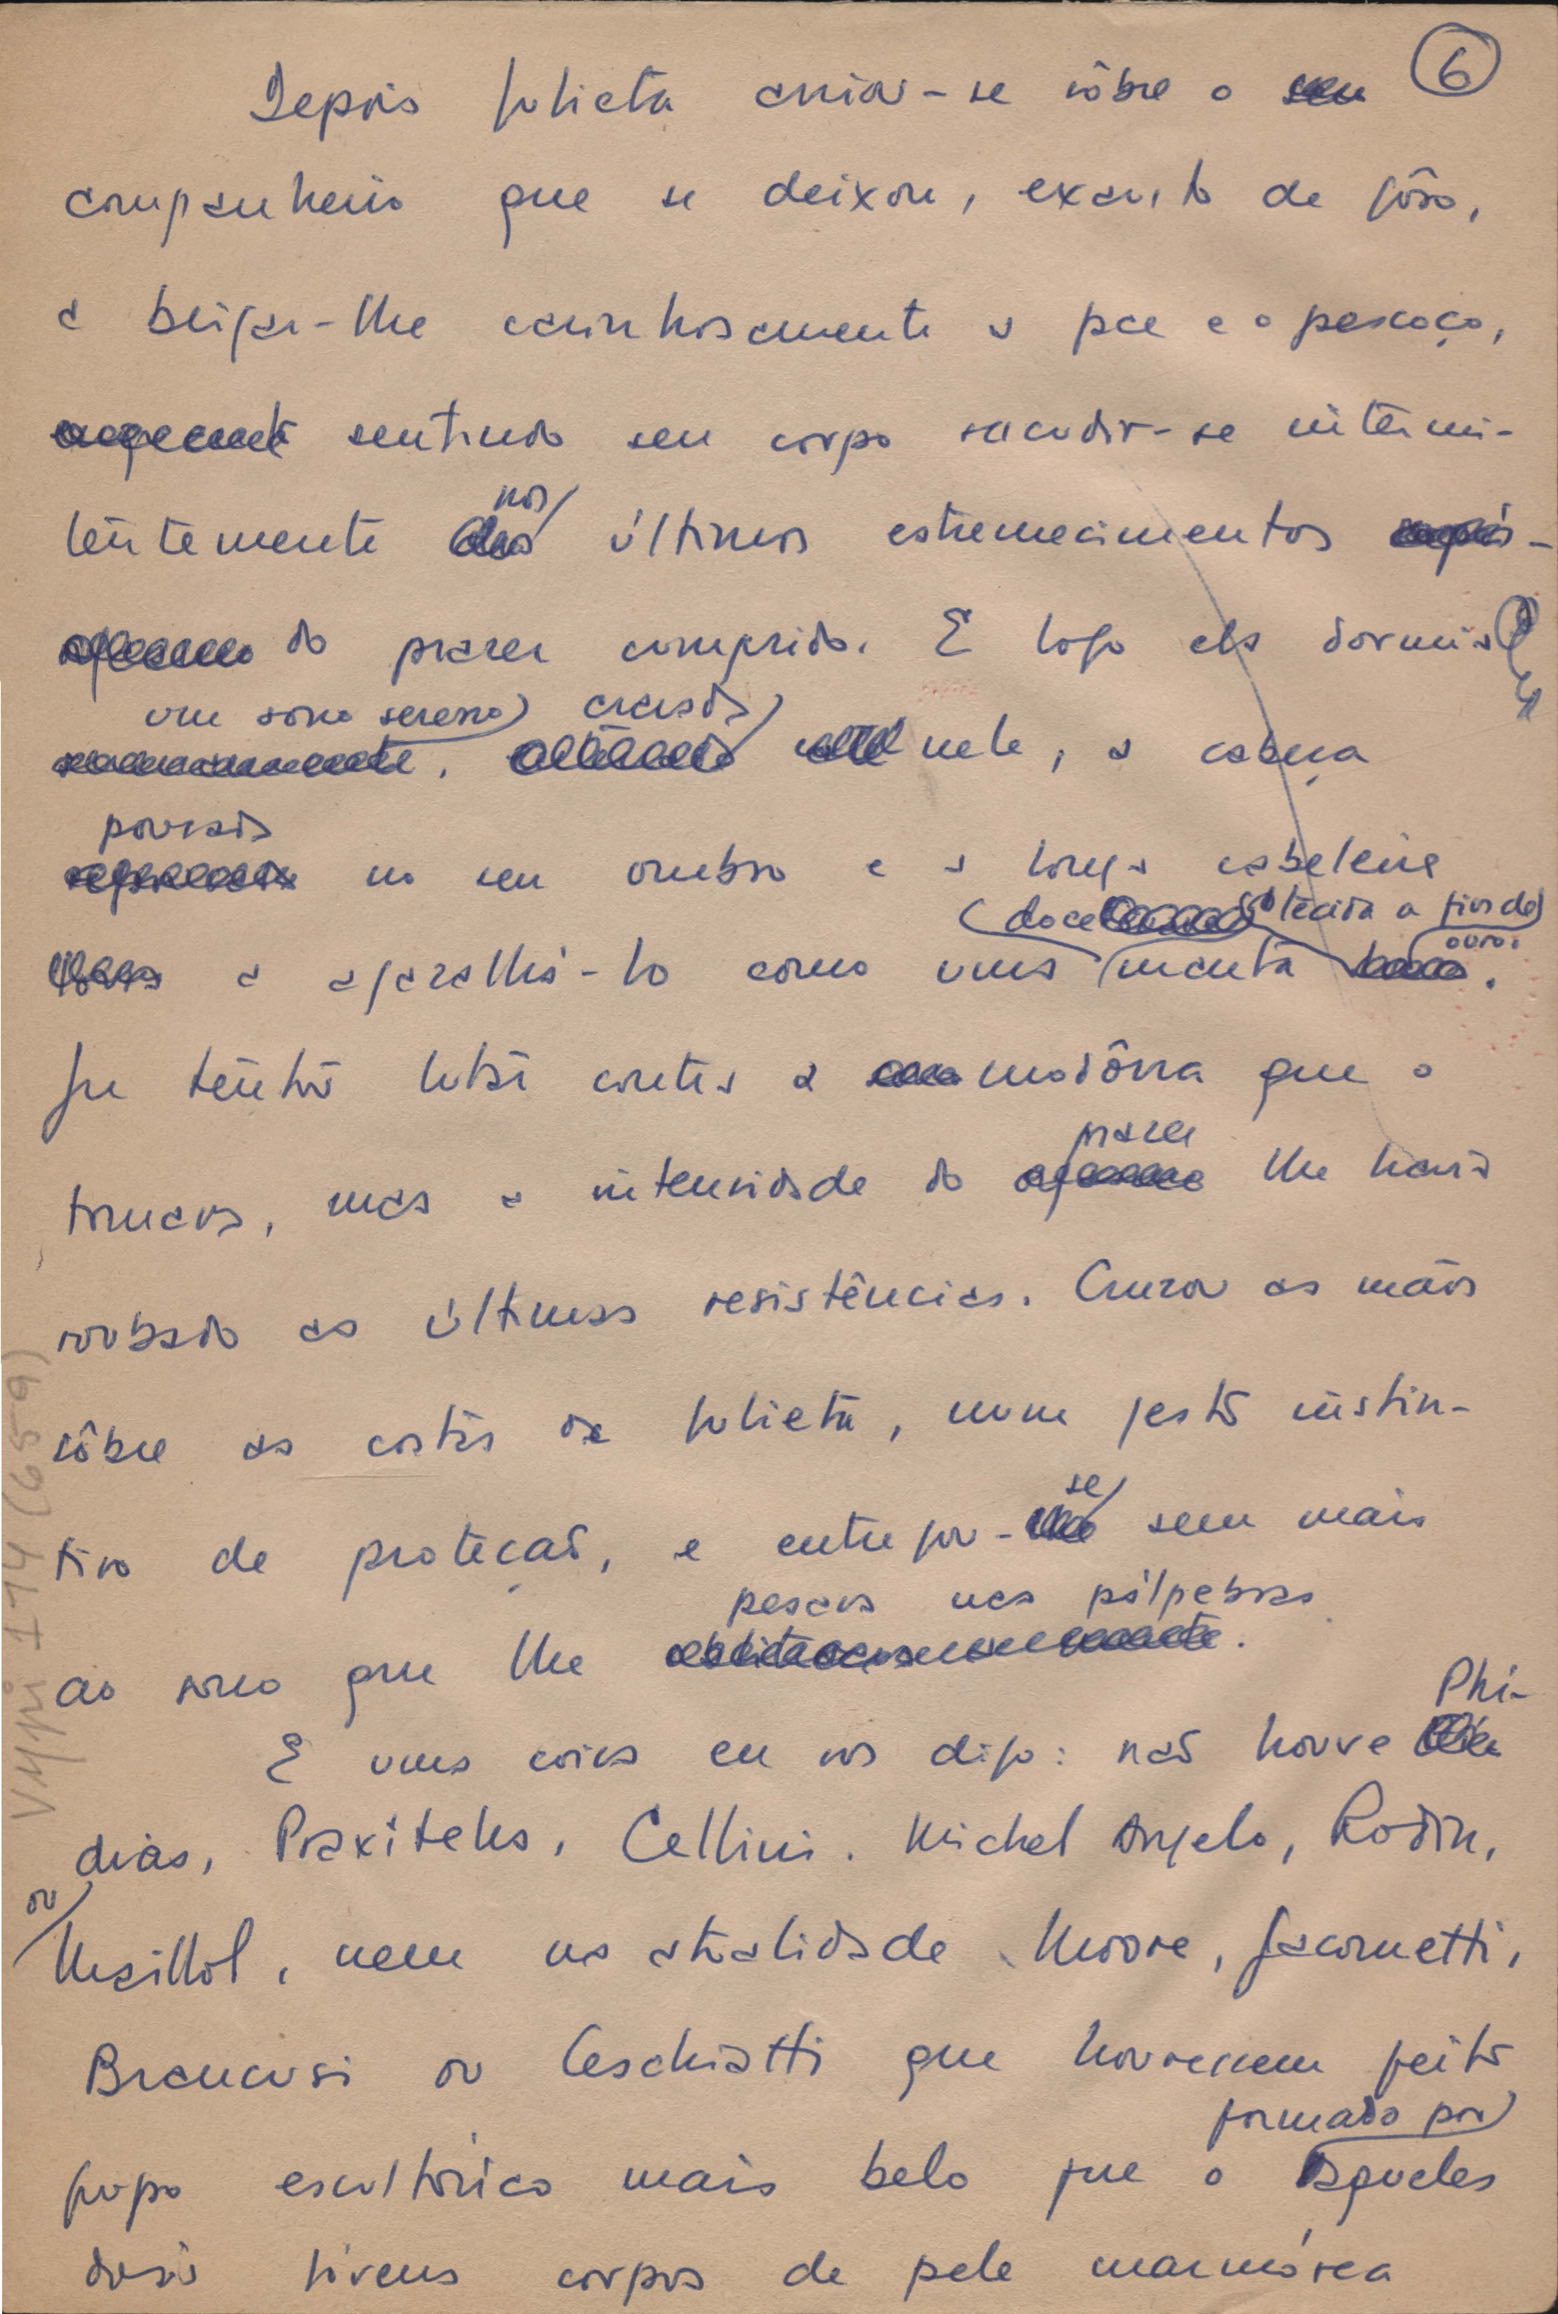 6
Depois Julieta arriou-se sôbre o seu
companheiro que se deixou, exausto de gôso,
a beijar-lhe carinhosamente a face e o pescoço,
sentindo seu corpo sacudir-se intermi-
tentemente nos últimos estremecimentos
do prazer cumprido. E logo ela dormia
um sono sereno, nele, a cabeça
pousada no seu ombro e a longa cabeleira
a agasalhá-lo como uma doce manta tecida a fios de ouro.
tentou lutar contra a modôrra que o
tomava, mas a intensidade do prazer lhe havia
roubado as últimas resistências. Cruzou as mãos
sôbre as costas de Julieta, num gesto instin-
tivo de proteção, e entregou-se sem mais
ao sono que lhe pesava nas pálpebras.
E uma coisa eu vos digo: não houve Phí-
dias, Praxíteles, Cellini, Michel Angelo, Rodin,
ou Maillol, nem na atualidade Moore, Giacometti,
Brancusi ou Ceschiatti que houvessem feito
grupo escultórico mais belo que o formado por aqueles
dois jovens corpos de pele marmórea
Vypi 174 (659)